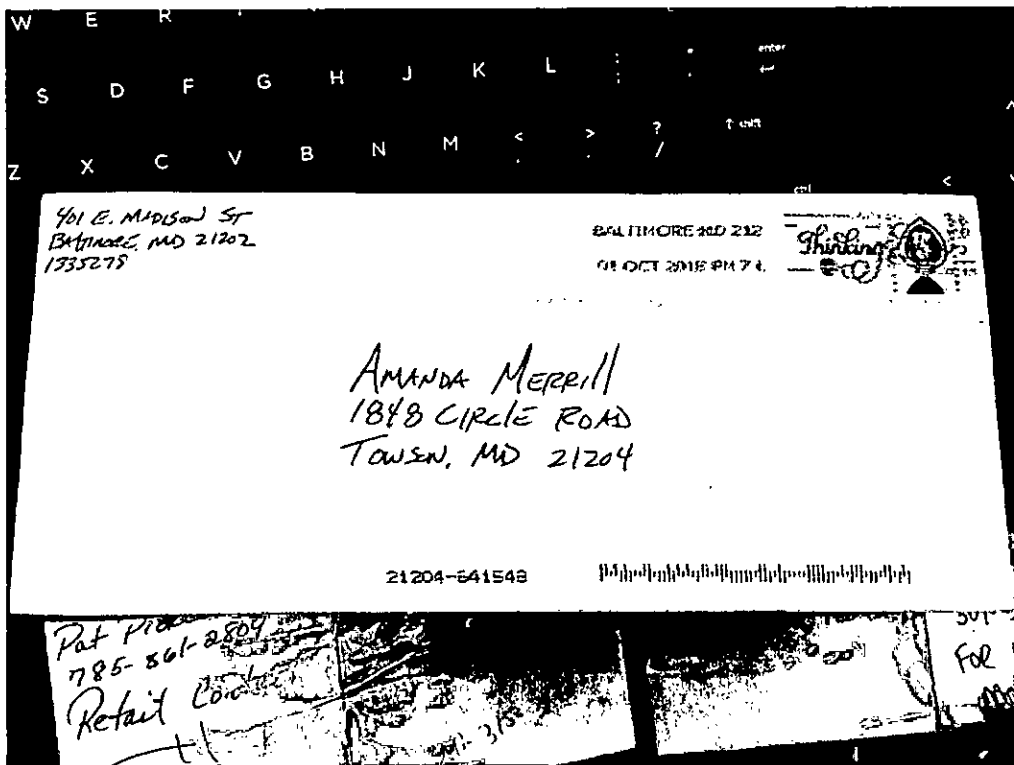 W E R
S D F G H J K L : ; " ' enter
Z X C V B N M < , > . ? / ↑ shift
ctrl <
401 E. MADISON ST
BALTIMORE, MD 21202
1335278
BALTIMORE MD 212
OCT 2018 PM 7 L
Thinking
AMANDA MERRill
1848 CIRClE ROAD
TOWSN, MD 21204
21204-641548
Pat
785-861-2804
Retail
FOR